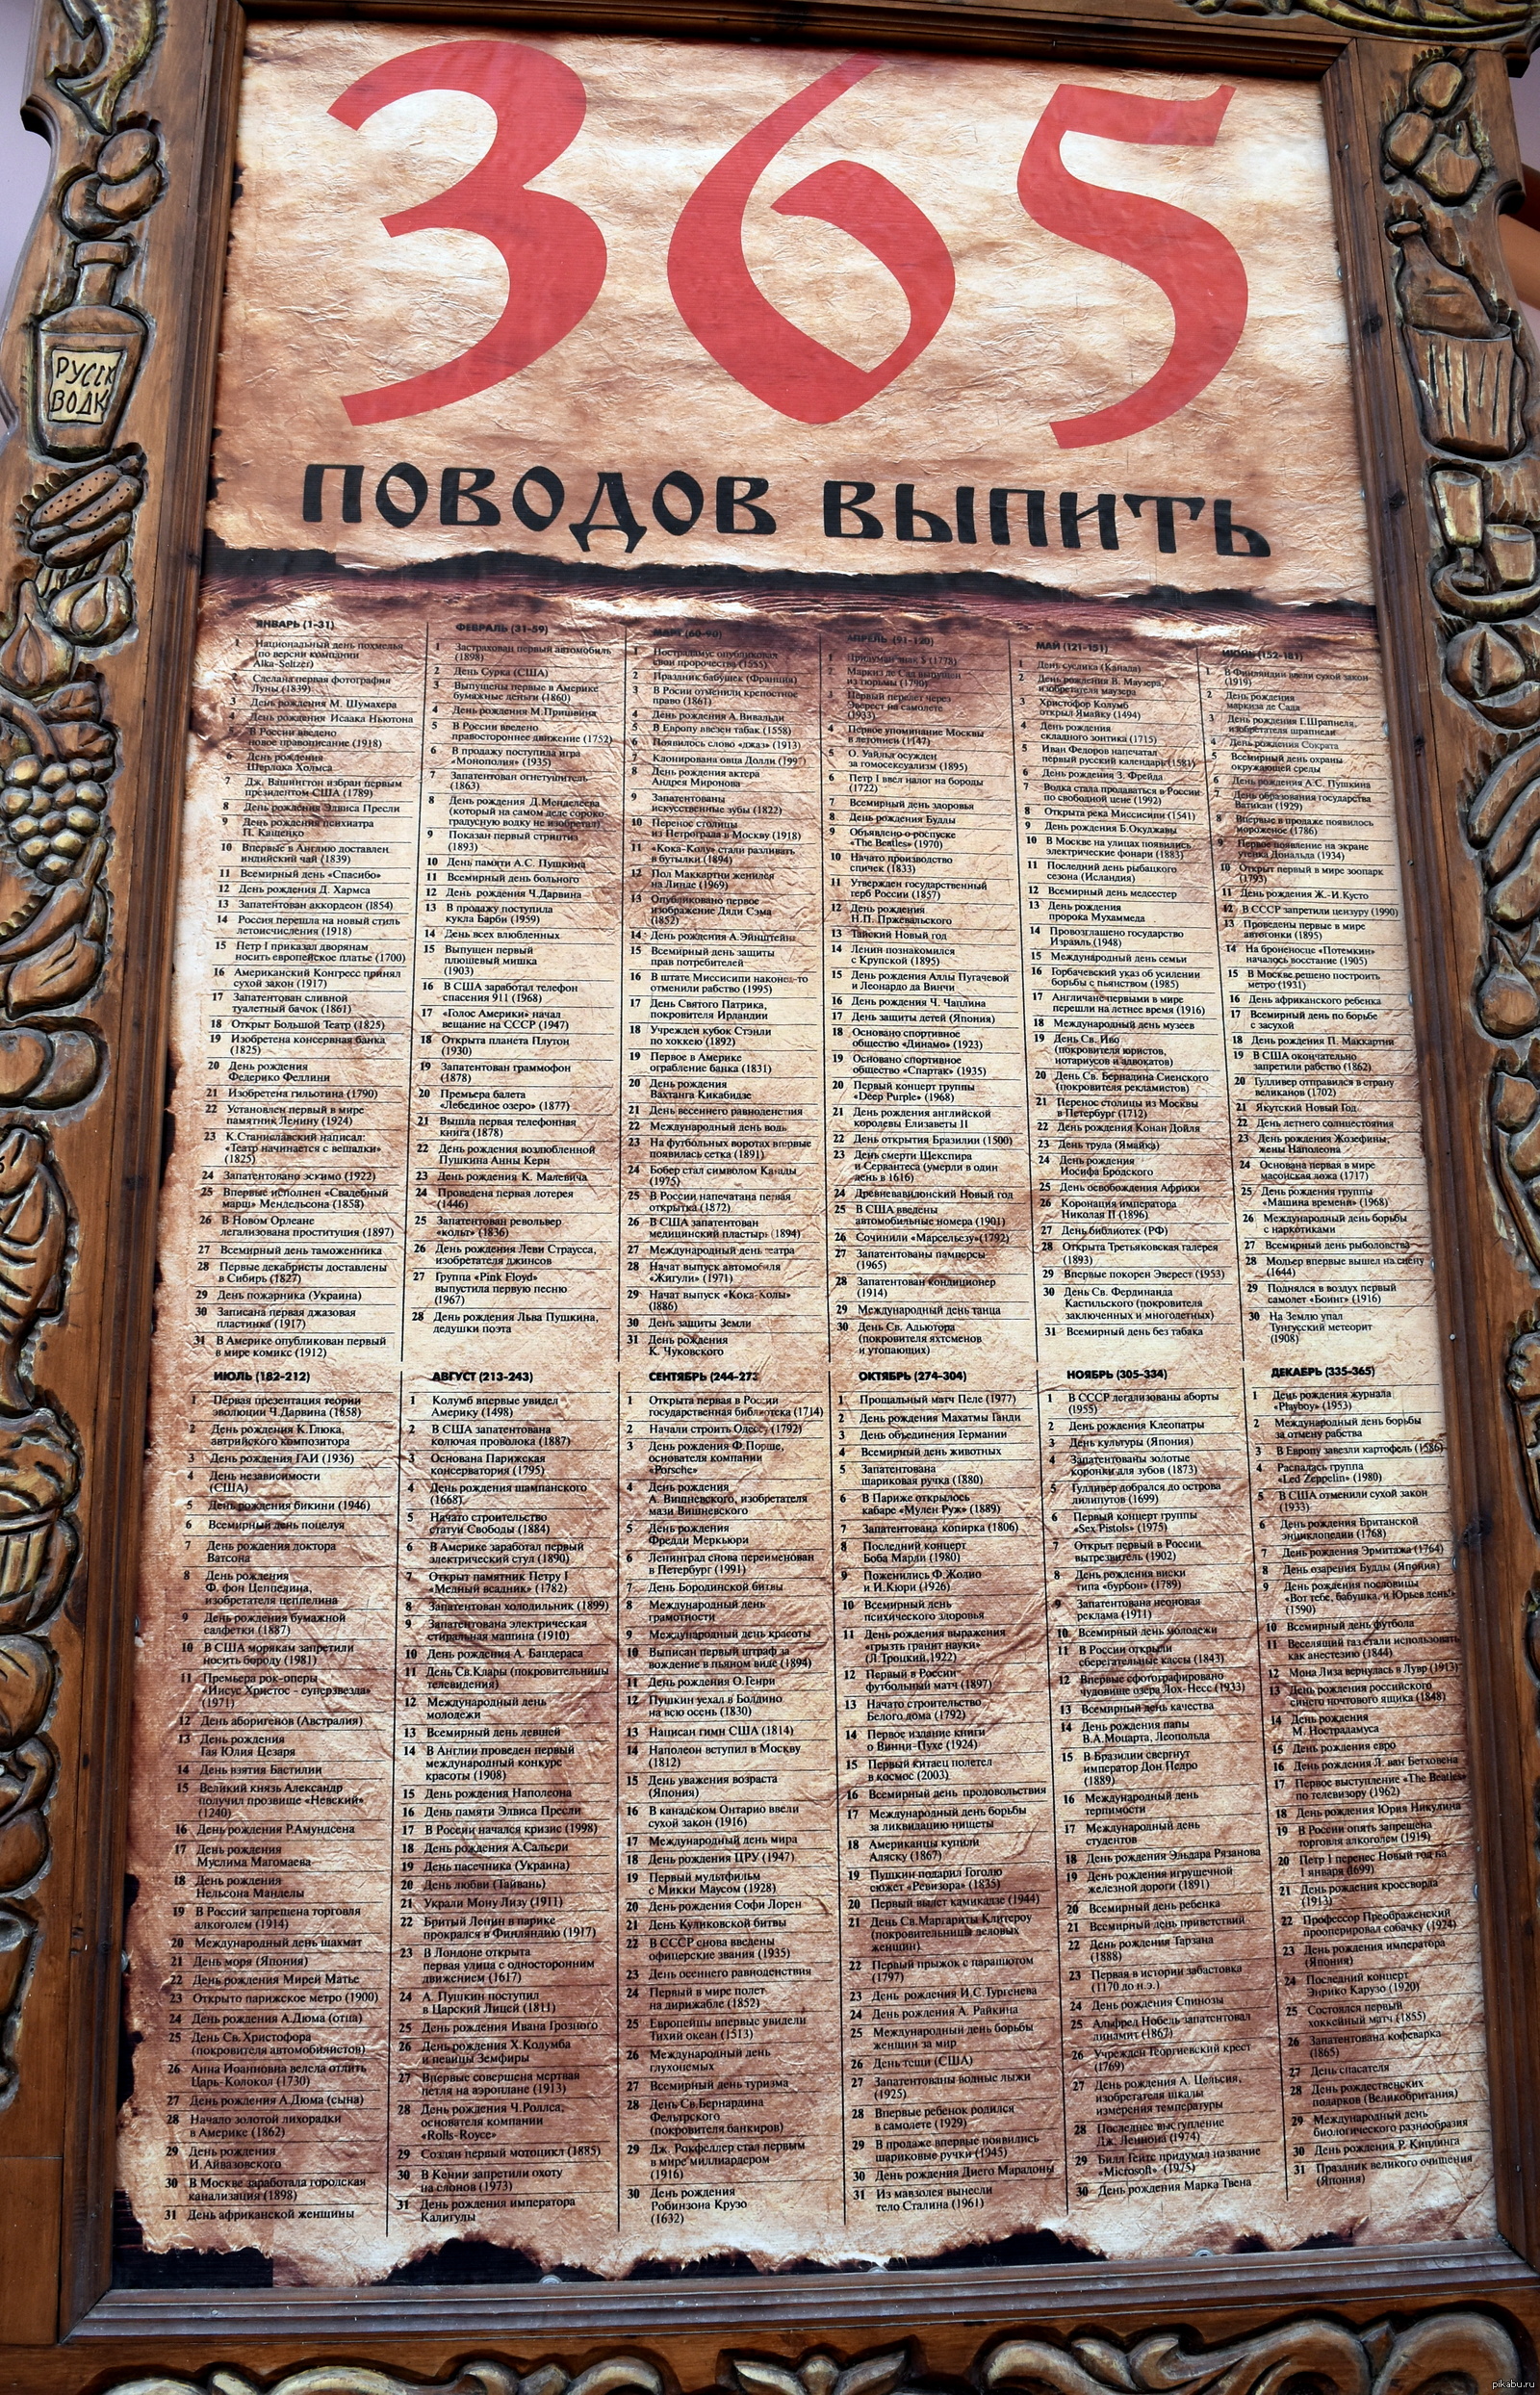 365
ПОВОДОВ ВЫПИТЬ
РУССК
ВОДК
ЯНВАРЬ (1-31)
1 Национальный день похмелья
(по версии компании
Alka-Seltzer)
2 Сделана первая фотография
Луны (1839)
3 День рождения М. Шумахера
4 День рождения Исаака Ньютона
5 В России введено
новое правописание (1918)
6 День рождения
Шерлока Холмса
7 Дж. Вашингтон избран первым
президентом США (1789)
8 День рождения Элвиса Пресли
9 День рождения психиатра
П. Кащенко
10 Впервые в Англию доставлен
индийский чай (1839)
11 Всемирный день «Спасибо»
12 День рождения Д. Хармса
13 Запатентован аккордеон (1854)
14 Россия перешла на новый стиль
летоисчисления (1918)
15 Петр I приказал дворянам
носить европейское платье (1700)
16 Американский Конгресс принял
сухой закон (1917)
17 Запатентован сливной
туалетный бачок (1861)
18 Открыт Большой Театр (1825)
19 Изобретена консервная банка
(1825)
20 День рождения
Федерико Феллини
21 Изобретена гильотина (1790)
22 Установлен первый в мире
памятник Ленину (1924)
23 К.Станиславский написал:
«Театр начинается с вешалки»
(1825)
24 Запатентовано эскимо (1922)
25 Впервые исполнен «Свадебный
марш» Мендельсона (1858)
26 В Новом Орлеане
легализована проституция (1897)
27 Всемирный день таможенника
28 Первые декабристы доставлены
в Сибирь (1827)
29 День пожарника (Украина)
30 Записана первая джазовая
пластинка (1917)
31 В Америке опубликован первый
в мире комикс (1912)
ФЕВРАЛЬ (31-59)
1 Застрахован первый автомобиль
(1898)
2 День Сурка (США)
3 Выпущены первые в Америке
бумажные деньги (1860)
4 День рождения М.Пришвина
5 В России введено
правостороннее движение (1752)
6 В продажу поступила игра
«Монополия» (1935)
7 Запатентован огнетушитель
(1863)
8 День рождения Д.Менделеева
(который на самом деле сорока-
градусную водку не изобретал)
9 Показан первый стриптиз
(1893)
10 День памяти А.С. Пушкина
11 Всемирный день больного
12 День рождения Ч.Дарвина
13 В продажу поступила
кукла Барби (1959)
14 День всех влюбленных
15 Выпущен первый
плюшевый мишка
(1903)
16 В США заработал телефон
спасения 911 (1968)
17 «Голос Америки» начал
вещание на СССР (1947)
18 Открыта планета Плутон
(1930)
19 Запатентован граммофон
(1878)
20 Премьера балета
«Лебединое озеро» (1877)
21 Вышла первая телефонная
книга (1878)
22 День рождения возлюбленной
Пушкина Анны Керн
23 День рождения К. Малевича
24 Проведена первая лотерея
(1446)
25 Запатентован револьвер
«кольт» (1836)
26 День рождения Леви Страусса,
изобретателя джинсов
27 Группа «Pink Floyd»
выпустила первую песню
(1967)
28 День рождения Льва Пушкина,
дедушки поэта
МАРТ (60-90)
1 Нострадамус опубликовал
свои пророчества (1555)
2 Праздник бабушек (Франция)
3 В Росии отменили крепостное
право (1861)
4 День рождения А.Вивальди
5 В Европу ввезен табак (1558)
6 Появилось слово «джаз» (1913)
7 Клонирована овца Долли (199
8 День рождения актера
Андрея Миронова
9 Запатентованы
искусственные зубы (1822)
10 Перенос столицы
из Петрограда в Москву (1918)
11 «Кока-Колу» стали разливать
в бутылки (1894)
12 Пол Маккартни женился
на Линде (1969)
13 Опубликовано первое
изображение Дяди Сэма
(1852)
14 День рождения А.Эйнштейна
15 Всемирный день защиты
прав потребителей
16 В штате Миссисипи наконец-то
отменили рабство (1995)
17 День Святого Патрика,
покровителя Ирландии
18 Учрежден кубок Стэнли
по хоккею (1892)
19 Первое в Америке
ограбление банка (1831)
20 День рождения
Вахтанга Кикабидзе
21 День весеннего равноденствия
22 Международный день воды
23 На футбольных воротах впервые
появилась сетка (1891)
24 Бобер стал символом Канады
(1975)
25 В России напечатана первая
открытка (1872)
26 В США запатентован
медицинский пластырь (1894)
27 Международный день театра
28 Начат выпуск автомобиля
«Жигули» (1971)
29 Начат выпуск «Кока-Колы»
(1886)
30 День защиты Земли
31 День рождения
К. Чуковского
АПРЕЛЬ (91-120)
1 Придуман знак $ (1778)
2 Маркиз де Сад выпущен
из тюрьмы (1790)
3 Первый перелет через
Эверест на самолете
(1933)
4 Первое упоминание Москвы
в летописи (1147)
5 О. Уайльд осужден
за гомосексуализм (1895)
6 Петр I ввел налог на бороды
(1722)
7 Всемирный день здоровья
8 День рождения Будды
9 Объявлено о роспуске
«The Beatles» (1970)
10 Начато производство
спичек (1833)
11 Утвержден государственный
герб России (1857)
12 День рождения
Н.П. Пржевальского
13 Тайский Новый год
14 Ленин познакомился
с Крупской (1895)
15 День рождения Аллы Пугачевой
и Леонардо да Винчи
16 День рождения Ч. Чаплина
17 День защиты детей (Япония)
18 Основано спортивное
общество «Динамо» (1923)
19 Основано спортивное
общество «Спартак» (1935)
20 Первый концерт группы
«Deep Purple» (1968)
21 День рождения английской
королевы Елизаветы II
22 День открытия Бразилии (1500)
23 День смерти Шекспира
и Сервантеса (умерли в один
день в 1616)
24 Древневавилонский Новый год
25 В США введены
автомобильные номера (1901)
26 Сочинили «Марсельезу»(1792)
27 Запатентованы памперсы
(1965)
28 Запатентован кондиционер
(1914)
29 Международный день танца
30 День Св. Адьютора
(покровителя яхтсменов
и утопающих)
МАЙ (121-151)
1 День суслика (Канада)
2 День рождения В. Маузера,
изобретателя маузера
3 Христофор Колумб
открыл Ямайку (1494)
4 День рождения
складного зонтика (1715)
5 Иван Федоров напечатал
первый русский календарь (1581)
6 День рождения З. Фрейда
7 Водка стала продаваться в России
по свободной цене (1992)
8 Открыта река Миссисипи (1541)
9 День рождения Б.Окуджавы
10 В Москве на улицах появились
электрические фонари (1883)
11 Последний день рыбацкого
сезона (Исландия)
12 Всемирный день медсестер
13 День рождения
пророка Мухаммеда
14 Провозглашено государство
Израиль (1948)
15 Международный день семьи
16 Горбачевский указ об усилении
борьбы с пьянством (1985)
17 Англичане первыми в мире
перешли на летнее время (1916)
18 Международный день музеев
19 День Св. Иво
(покровителя юристов,
нотариусов и адвокатов)
20 День Св. Бернадина Сиенского
(покровителя рекламистов)
21 Перенос столицы из Москвы
в Петербург (1712)
22 День рождения Конан Дойля
23 День труда (Ямайка)
24 День рождения
Иосифа Бродского
25 День освобождения Африки
26 Коронация императора
Николая II (1896)
27 День библиотек (РФ)
28 Открыта Третьяковская галерея
(1893)
29 Впервые покорен Эверест (1953)
30 День Св. Фердинанда
Кастильского (покровителя
заключенных и многодетных)
31 Всемирный день без табака
ИЮНЬ (152-181)
1 В Финляндии ввели сухой закон
(1919)
2 День рождения
маркиза де Сада
3 День рождения Г.Шрапнеля,
изобретателя шрапнели
4 День рождения Сократа
5 Всемирный день охраны
окружающей среды
6 День рождения А.С. Пушкина
7 День образования государства
Ватикан (1929)
8 Впервые в продаже появилось
мороженое (1786)
9 Первое появление на экране
утенка Дональда (1934)
10 Открыт первый в мире зоопарк
(1793)
11 День рождения Ж.-И.Кусто
12 В СССР запретили цензуру (1990)
13 Проведены первые в мире
автогонки (1895)
14 На броненосце «Потемкин»
началось восстание (1905)
15 В Москве решено построить
метро (1931)
16 День африканского ребенка
17 Всемирный день по борьбе
с засухой
18 День рождения П. Маккартни
19 В США окончательно
запретили рабство (1862)
20 Гулливер отправился в страну
великанов (1702)
21 Якутский Новый Год
22 День летнего солнцестояния
23 День рождения Жозефины,
жены Наполеона
24 Основана первая в мире
масонская ложа (1717)
25 День рождения группы
«Машина времени» (1968)
26 Международный день борьбы
с наркотиками
27 Всемирный день рыболовства
28 Мольер впервые вышел на сцену
(1644)
29 Поднялся в воздух первый
самолет «Боинг» (1916)
30 На Землю упал
Тунгусский метеорит
(1908)
ИЮЛЬ (182-212)
1 Первая презентация теории
эволюции Ч.Дарвина (1858)
2 День рождения К.Глюка,
автрийского композитора
3 День рождения ГАИ (1936)
4 День независимости
(США)
5 День рождения бикини (1946)
6 Всемирный день поцелуя
7 День рождения доктора
Ватсона
8 День рождения
Ф. фон Цеппелина,
изобретателя цеппелина
9 День рождения бумажной
салфетки (1887)
10 В США морякам запретили
носить бороду (1981)
11 Премьера рок-оперы
«Иисус Христос - суперзвезда»
(1971)
12 День аборигенов (Австралия)
13 День рождения
Гая Юлия Цезаря
14 День взятия Бастилии
15 Великий князь Александр
получил прозвище «Невский».
(1240)
16 День рождения Р.Амундсена
17 День рождения
Муслима Магомаева
18 День рождения
Нельсона Манделы
19 В России запрещена торговля
алкоголем (1914)
20 Международный день шахмат
21 День моря (Япония)
22 День рождения Мирей Матье
23 Открыто парижское метро (1900)
24 День рождения А.Дюма (отца)
25 День Св.Христофора
(покровителя автомобилистов)
26 Анна Иоанновна велела отлить
Царь-Колокол (1730)
27 День рождения А.Дюма (сына)
28 Начало золотой лихорадки
в Америке (1862)
29 День рождения
И.Айвазовского
30 В Москве заработала городская
канализация (1898)
31 День африканской женщины
АВГУСТ (213-243)
1 Колумб впервые увидел
Америку (1498)
2 В США запатентована
колючая проволока (1887)
3 Основана Парижская
консерватория (1795)
4 День рождения шампанского
(1668)
5 Начато строительство
статуи Свободы (1884)
6 В Америке заработал первый
электрический стул (1890)
7 Открыт памятник Петру I
«Медный всадник» (1782)
8 Запатентован холодильник (1899)
9 Запатентована электрическая
стиральная машина (1910)
10 День рождения А. Бандераса
11 День Св.Клары (покровительницы
телевидения)
12 Международный день
молодежи
13 Всемирный день левшей
14 В Англии проведен первый
международный конкурс
красоты (1908)
15 День рождения Наполеона
16 День памяти Элвиса Пресли
17 В России начался кризис (1998)
18 День рождения А.Сальери
19 День пасечника (Украина)
20 День любви (Тайвань)
21 Украли Мону Лизу (1911)
22 Бритый Ленин в парике
прокрался в Финляндию (1917)
23 В Лондоне открыта
первая улица с односторонним
движением (1617)
24 А. Пушкин поступил
в Царский Лицей (1811)
25 День рождения Ивана Грозного
26 День рождения Х.Колумба
и певицы Земфиры
27 Впервые совершена мертвая
петля на аэроплане (1913)
28 День рождения Ч.Роллса,
основателя компании
«Rolls-Royce»
29 Создан первый мотоцикл (1885)
30 В Кении запретили охоту
на слонов (1973)
31 День рождения императора
Калигулы
СЕНТЯБРЬ (244-273
1 Открыта первая в России
государственная библиотека (1714)
2 Начали строить Одессу (1792)
3 День рождения Ф.Порше,
основателя компании
«Porsche»
4 День рождения
А. Вишневского, изобретателя
мази Вишневского
5 День рождения
Фредди Меркьюри
6 Ленинград снова переименован
в Петербург (1991)
7 День Бородинской битвы
8 Международный день
грамотности
9 Международный день красоты
10 Выписан первый штраф за
вождение в пьяном виде (1894)
11 День рождения О.Генри
12 Пушкин уехал в Болдино
на всю осень (1830)
13 Написан гимн США (1814)
14 Наполеон вступил в Москву
(1812)
15 День уважения возраста
(Япония)
16 В канадском Онтарио ввели
сухой закон (1916)
17 Международный день мира
18 День рождения ЦРУ (1947)
19 Первый мультфильм
с Микки Маусом (1928)
20 День рождения Софи Лорен
21 День Куликовской битвы
22 В СССР снова введены
офицерские звания (1935)
23 День осеннего равноденствия
24 Первый в мире полет
на дирижабле (1852)
25 Европейцы впервые увидели
Тихий океан (1513)
26 Международный день
глухонемых
27 Всемирный день туризма
28 День Св.Бернардина
Фельтрского
(покровителя банкиров)
29 Дж. Рокфеллер стал первым
в мире миллиардером
(1916)
30 День рождения
Робинзона Крузо
(1632)
ОКТЯБРЬ (274-304)
1 Прощальный матч Пеле (1977)
2 День рождения Махатмы Ганди
3 День объединения Германии
4 Всемирный день животных
5 Запатентована
шариковая ручка (1880)
6 В Париже открылось
кабаре «Мулен Руж» (1889)
7 Запатентована копирка (1806)
8 Последний концерт
Боба Марли (1980)
9 Поженились Ф.Жолио
и И.Кюри (1926)
10 Всемирный день
психического здоровья
11 День рождения выражения
«грызть гранит науки»
(Л.Троцкий,1922)
12 Первый в России
футбольный матч (1897)
13 Начато строительство
Белого дома (1792)
14 Первое издание книги
о Винни-Пухе (1924)
15 Первый китаец полетел
в космос (2003)
16 Всемирный день продовольствия
17 Международный день борьбы
за ликвидацию нищеты
18 Американцы купили
Аляску (1867)
19 Пушкин подарил Гоголю
сюжет «Ревизора» (1835)
20 Первый вылет камикадзе (1944)
21 День Св.Маргариты Клитероу
(покровительницы деловых
женщин)
22 Первый прыжок с парашютом
(1797)
23 День рождения И.С.Тургенева
24 День рождения А. Райкина
25 Международный день борьбы
женщин за мир
26 День тещи (США)
27 Запатентованы водные лыжи
(1925)
28 Впервые ребенок родился
в самолете (1929)
29 В продаже впервые появились
шариковые ручки (1945)
30 День рождения Диего Марадоны
31 Из мавзолея вынесли
тело Сталина (1961)
НОЯБРЬ (305-334)
1 В СССР легализованы аборты
(1955)
2 День рождения Клеопатры
3 День культуры (Япония)
4 Запатентованы золотые
коронки для зубов (1873)
5 Гулливер добрался до острова
лилипутов (1699)
6 Первый концерт группы
«Sex Pistols» (1975)
7 Открыт первый в России
вытрезвитель (1902)
8 День рождения виски
типа «бурбон» (1789)
9 Запатентована неоновая
реклама (1911)
10 Всемирный день молодежи
11 В России открыли
сберегательные кассы (1843)
12 Впервые сфотографировано
чудовище озера Лох-Несс (1933)
13 Всемирный день качества
14 День рождения папы
В.А.Моцарта, Леопольда
15 В Бразилии свергнут
император Дон Педро
(1889)
16 Международный день
терпимости
17 Международный день
студентов
18 День рождения Эльдара Рязанова
19 День рождения игрушечной
железной дороги (1891)
20 Всемирный день ребенка
21 Всемирный день приветствий
22 День рождения Тарзана
(1888)
23 Первая в истории забастовка
(1170 до н.э.)
24 День рождения Спинозы
25 Альфред Нобель запатентовал
динамит (1867)
26 Учрежден Георгиевский крест
(1769)
27 День рождения А. Цельсия,
изобретателя шкалы
измерения температуры
28 Последнее выступление
Дж. Леннона (1974)
29 Билл Гейтс придумал название
«Microsoft» (1975)
30 День рождения Марка Твена
ДЕКАБРЬ (335-365)
1 День рождения журнала
«Playboy» (1953)
2 Международный день борьбы
за отмену рабства
3 В Европу завезли картофель (1586)
4 Распалась группа
«Led Zeppelin» (1980)
5 В США отменили сухой закон
(1933)
6 День рождения Британской
энциклопедии (1768)
7 День рождения Эрмитажа (1764)
8 День озарения Будды (Япония)
9 День рождения пословицы
«Вот тебе, бабушка, и Юрьев день!»
(1590)
10 Всемирный день футбола
11 Веселящий газ стали использовать
как анестезию (1844)
12 Мона Лиза вернулась в Лувр (1913)
13 День рождения российского
синего почтового ящика (1848)
14 День рождения
М. Нострадамуса
15 День рождения евро
16 День рождения Л. ван Бетховена
17 Первое выступление «The Beatles»
по телевизору (1962)
18 День рождения Юрия Никулина
19 В России опять запрещена
торговля алкоголем (1919)
20 Петр I перенес Новый год на
1 января (1699)
21 День рождения кроссворда
(1913)
22 Профессор Преображенский
прооперировал собачку (1924)
23 День рождения императора
(Япония)
24 Последний концерт
Энрико Карузо (1920)
25 Состоялся первый
хоккейный матч (1855)
26 Запатентована кофеварка
(1865)
27 День спасателя
28 День рождественских
подарков (Великобритания)
29 Международный день
биологического разнообразия
30 День рождения Р. Киплинга
31 Праздник великого очищения
(Япония)
pikabu.ru